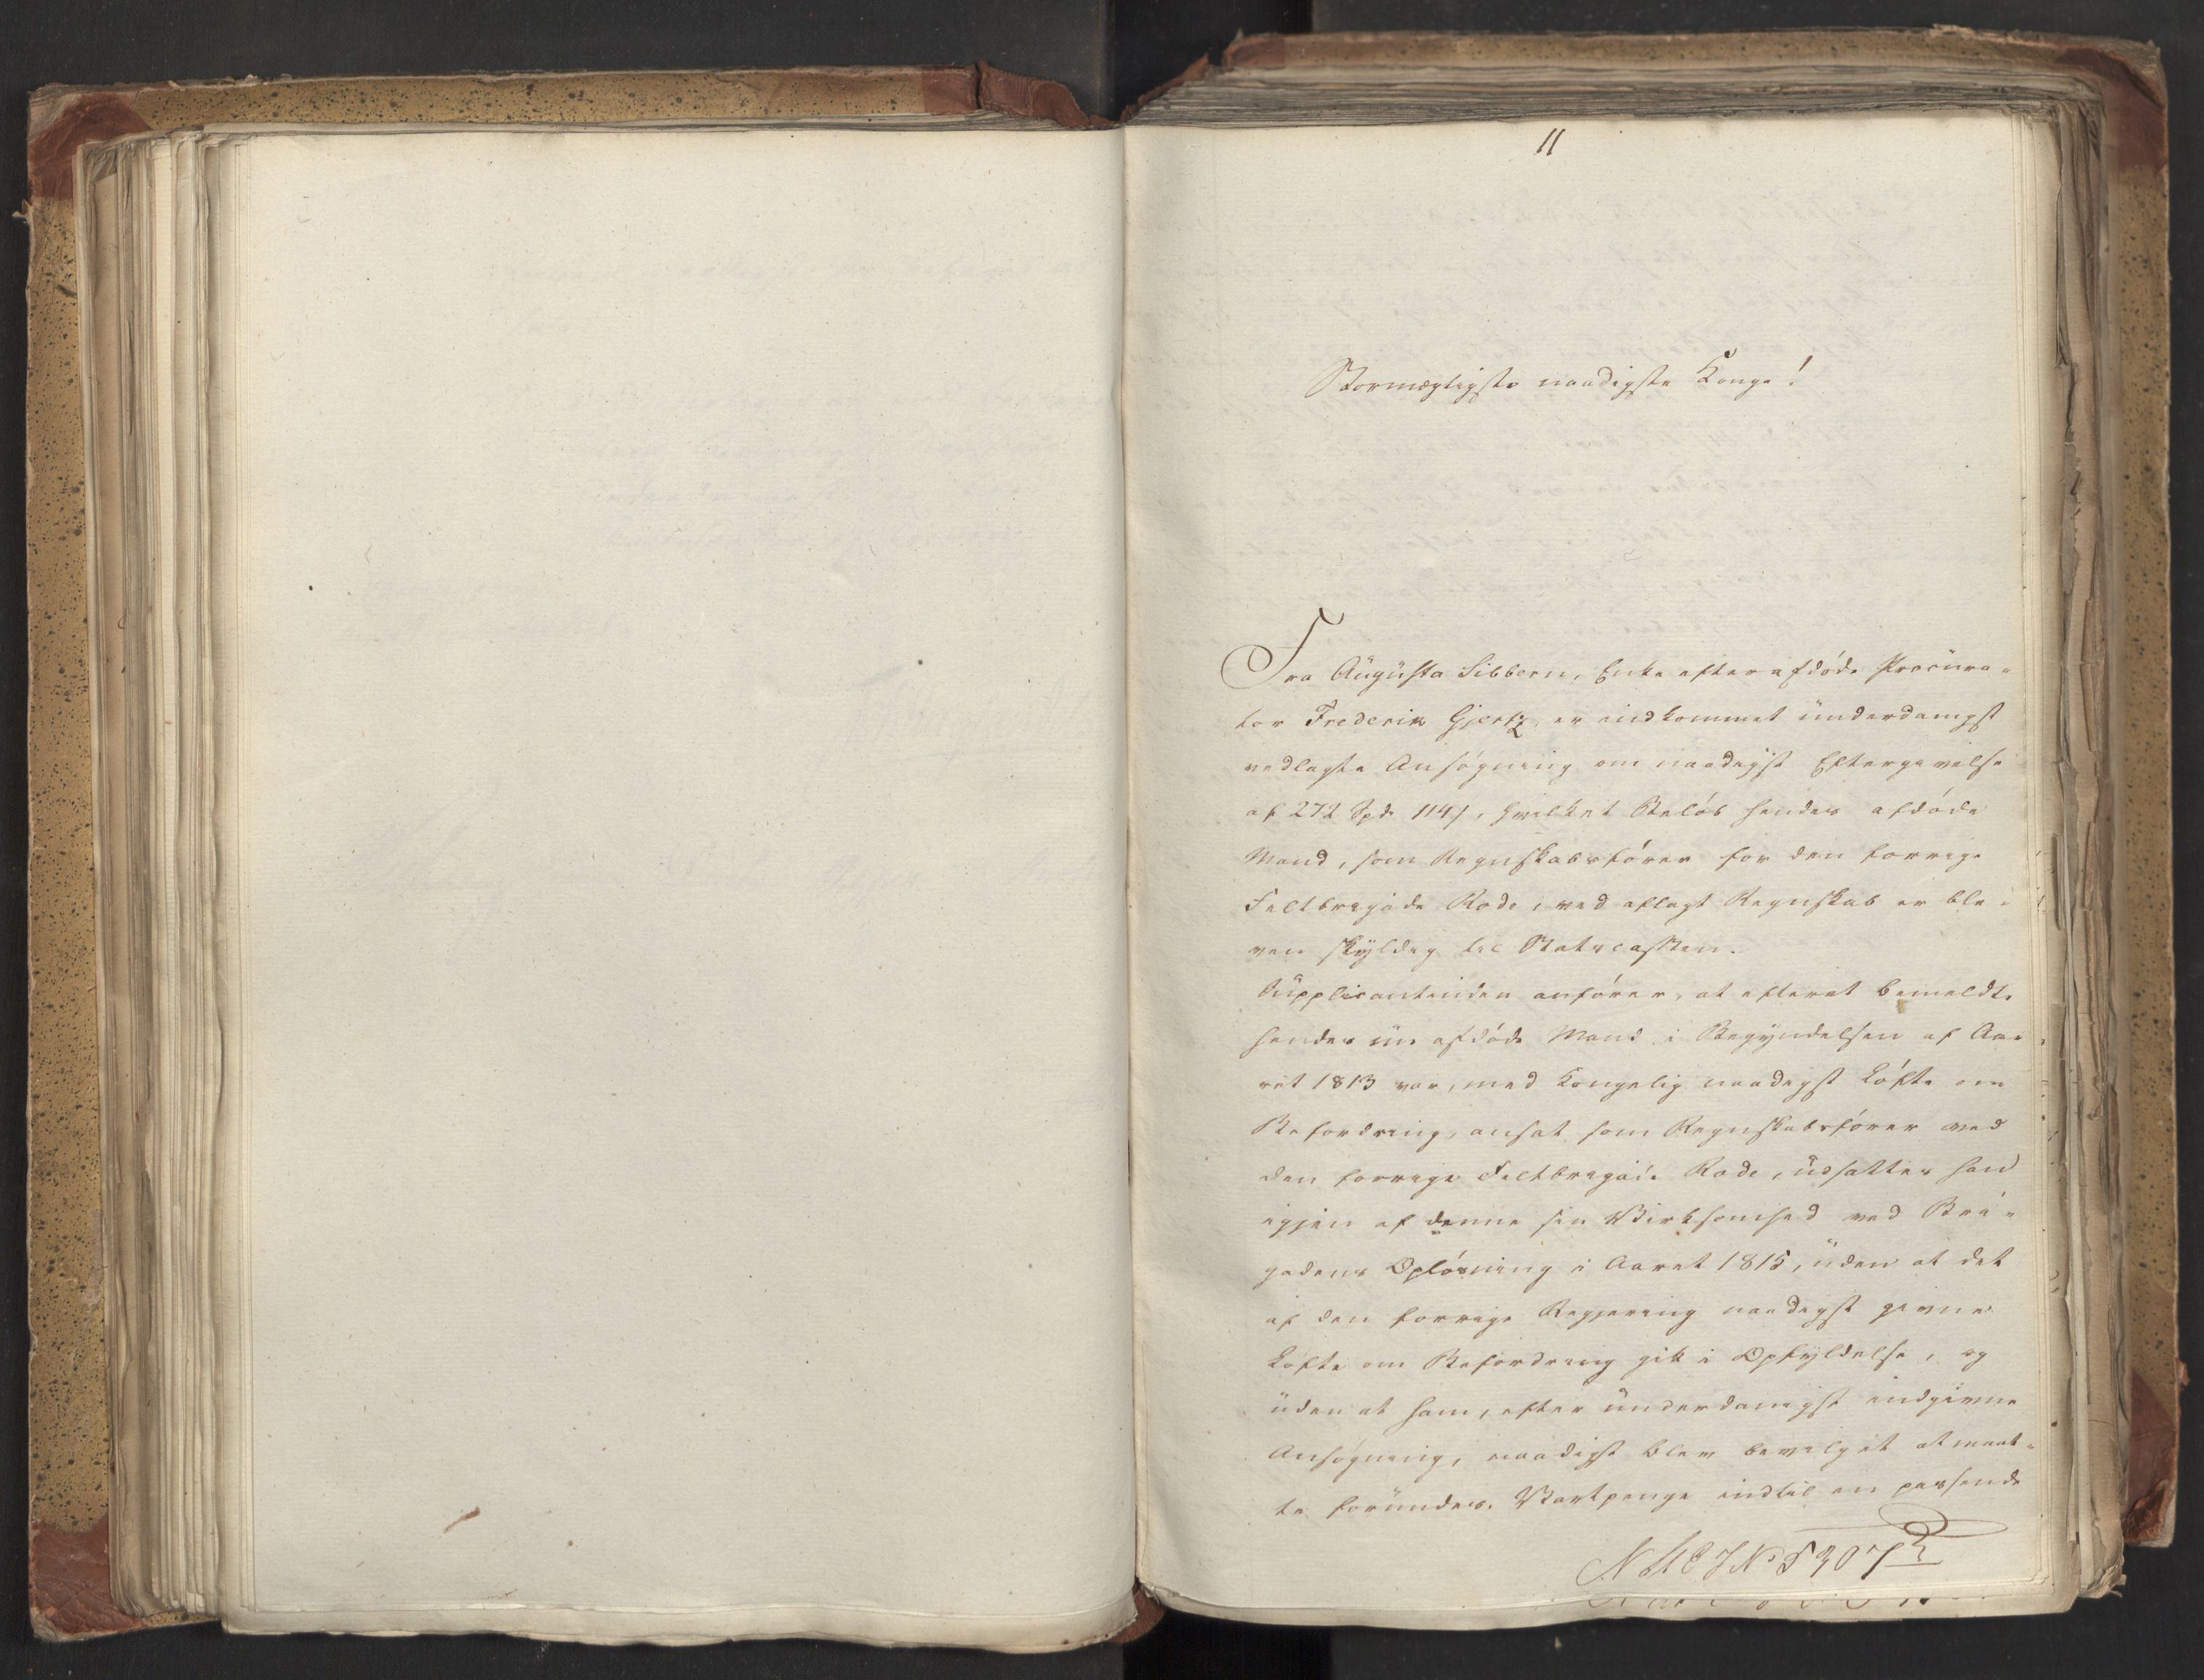 11
Stormægtigste naadigste Konge!
Fra Augusta Sibbern, Enke efter afdøde Procura-
tor Frederik Gjertz, er indkommet underdanigst
vedlagte Ansøgning om naadigst Eftergivelse
af 272 Spd. 114 s, hvilket Beløb hendes afdøde
Mand, som Regnskabsfører for den forrige
Feltbrigade Rode, ved aflagt Regnskab er ble-
ven skyldig til Statscassen.
Supplicantinden anfører, at efterat bemeldte
hendes nu afdøde Mand i Begyndelsen af Aa-
ret 1813 var, med Kongelig naadigst Løfte om
Befordring, ansat som Regnskabsfører ved
den forrige Feltbrigade Rode, udsattes han
igjen af denne sin Virksomhed ved Bri-
gadens Opløsning i Aaret 1815, uden at det
af den forrige Regjering naadigst givne
Løfte om Befordring gik i Opfyldelse, og
uden at ham, efter underdanigst indgivne
Ansøgning, naadigst blev bevilget at maat-
te forundes Vartpenge indtil en passende